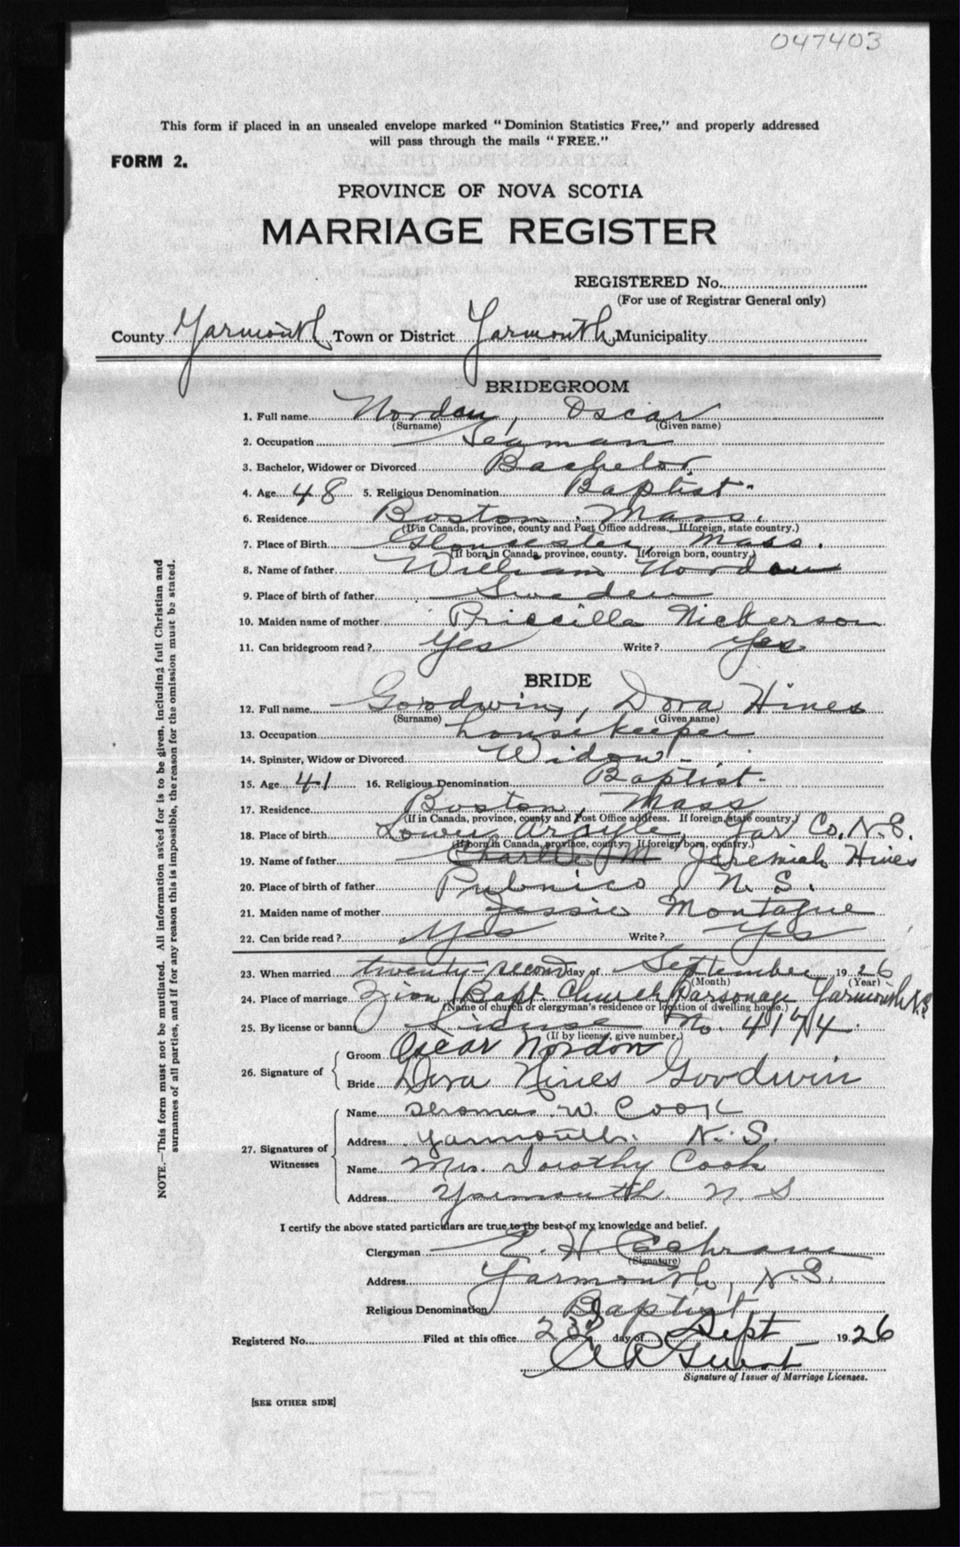 047403
This form if placed in an unsealed envelope marked "Dominion Statistics Free," and properly addressed
will pass through the mails "FREE."
FORM 2.
PROVINCE OF NOVA SCOTIA
MARRIAGE REGISTER
REGISTERED No.
(For use of Registrar General only)
County Yarmouth Town or District Yarmouth Municipality
BRIDEGROOM
1. Full name Nordon, Oscar
(Surname) (Given name)
2. Occupation Seaman
3. Bachelor, Widower or Divorced Bachelor
4. Age 48 5. Religious Denomination Baptist
6. Residence Boston Mass.
(If in Canada, province, county and Post Office address. If foreign, state country.)
7. Place of Birth Gloucester, Mass.
(If born in Canada, province, county. If foreign born, country.)
8. Name of father William Nordon
9. Place of birth of father Sweden
10. Maiden name of mother Priscilla Nickerson
11. Can bridegroom read? Yes Write? Yes
BRIDE
12. Full name Goodwin, Dora Hines
(Surname) (Given name)
13. Occupation housekeeper
14. Spinster, Widow or Divorced Widow
15. Age 41 16. Religious Denomination Baptist
17. Residence Boston, Mass
(If in Canada, province, county and Post Office address. If foreign, state country.)
18. Place of birth Lower Argyle, Yar Co. N.S.
(If born in Canada, province, county. If foreign born, country.)
19. Name of father Charlie M Jeremiah Hines
20. Place of birth of father Pubnico N.S.
21. Maiden name of mother Jessie Montague
22. Can bride read? Yes Write? Yes
23. When married twenty-second day of September 1926
(Month) (Year)
24. Place of marriage Zion Bapt. Church Parsonage Yarmouth N.S.
(Name of church or clergyman's residence or location of dwelling house.)
25. By license or banns License No. 4174
(If by license, give number.)
26. Signature of
Groom Oscar Nordon
Bride Dora Hines Goodwin
27. Signatures of Witnesses
Name Thomas W. Cook
Address Yarmouth. N.S.
Name Mrs. Dorothy Cook
Address Yarmouth N S
I certify the above stated particulars are true to the best of my knowledge and belief.
Clergyman E. H. Cochrane
(Signature)
Address Yarmouth, N.S.
Religious Denomination Baptist
Registered No. Filed at this office 23 day of Sept 1926
Signature of Issuer of Marriage Licenses.
[SEE OTHER SIDE]
NOTE.—This form must not be mutilated. All information asked for is to be given, including full Christian and
surnames of all parties, and if for any reason this is impossible, the reason for the omission must be stated.